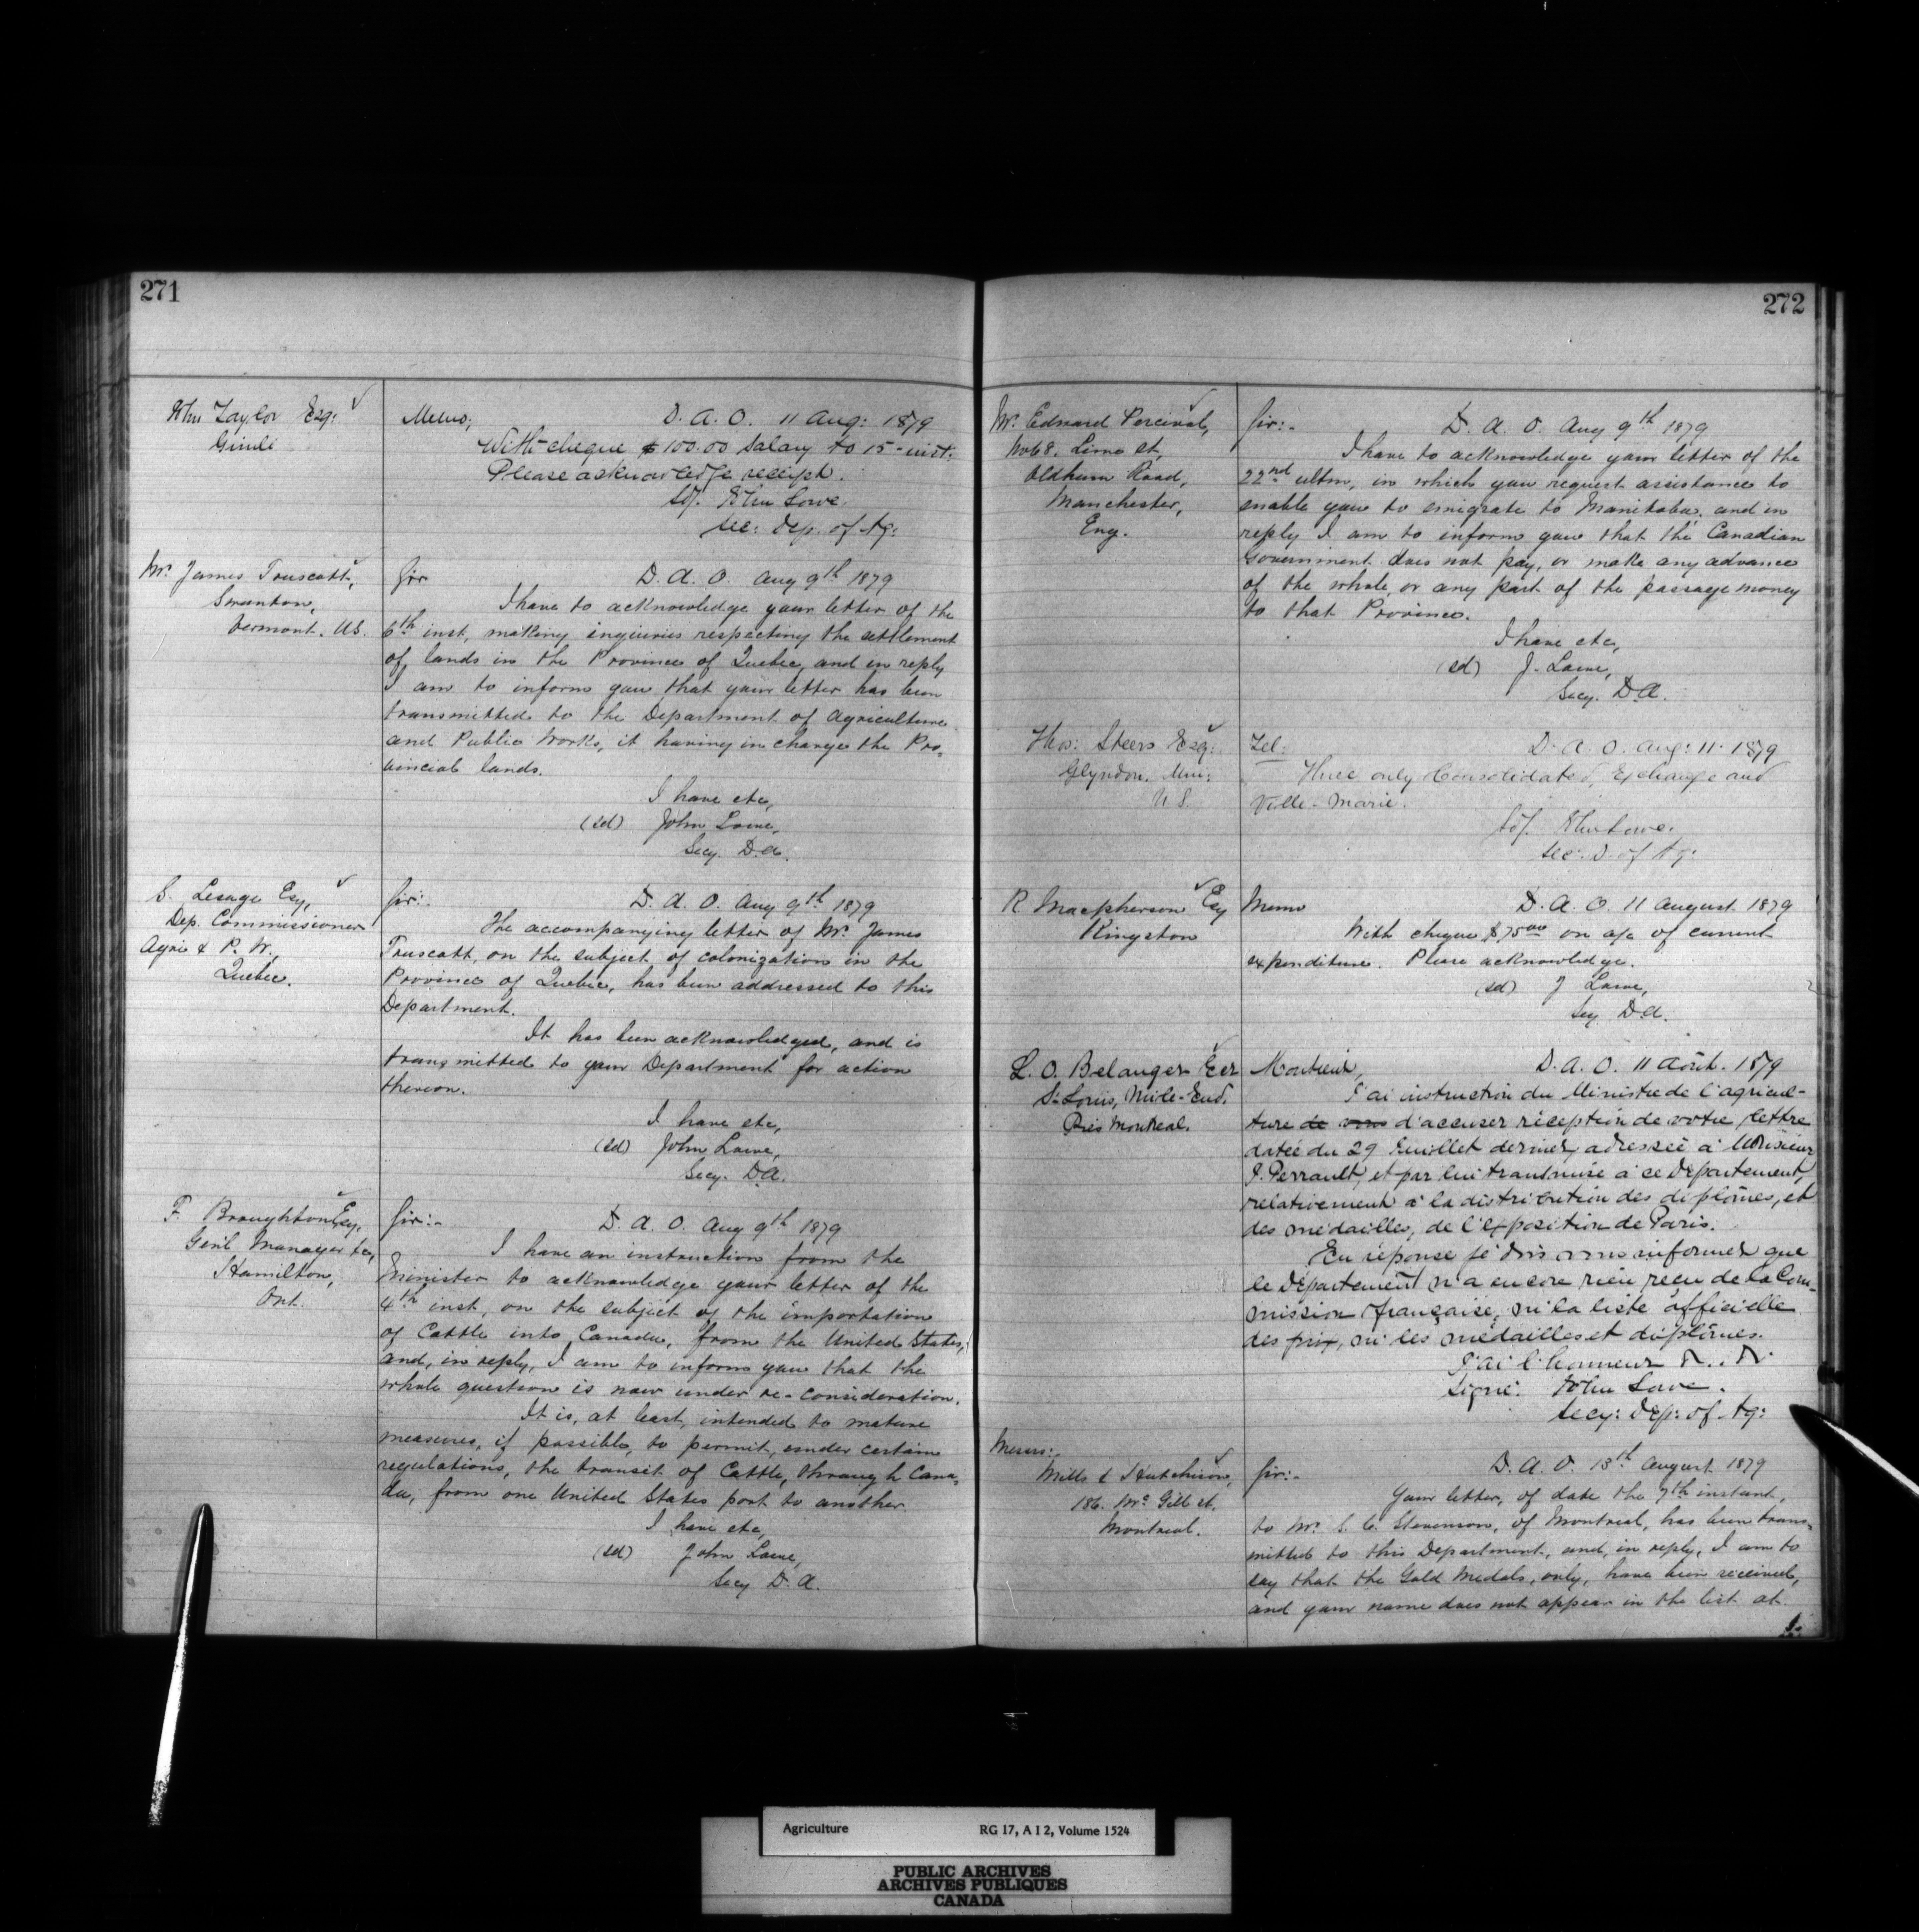 271
John Taylor Esq:
Gimli
Memo; D. A. O. 11 Aug: 1879
With cheque $100.00 Salary to 15 - inst:
Please acknowledge receipt.
Sd/. John Lowe.
Sec: Dep. of Ag:
Mr. James Truscott,
Swanton,
Vermont. U.S.
Sir D. A. O. Aug 9th 1879
I have to acknowledge your letter of the
6th inst, making inquiries respecting the settlement
of lands in the Province of Quebec, and in reply
I am to inform you that your letter has been
transmitted to the Department of Agriculture
and Public Works, it having in charge the Pro-
vincial lands.
I have etc,
(sd) John Lowe,
Secy. D.A.
S. Lesage Esq,
Dep. Commissioner
Agri & P. W.,
Quebec.
Sir:- D. A. O. Aug 9th 1879
The accompanying letter of Mr. James
Truscott, on the subject of colonization in the
Province of Quebec, has been addressed to this
Department.
It has been acknowledged, and is
transmitted to your Department for action
thereon.
I have etc,
(sd) John Lowe,
Secy. D.A.
F. Broughton Esq,
Genl Manager &c,
Hamilton,
Ont.
Sir:- D. A. O. Aug 9th 1879
I have an instruction from the
Minister to acknowledge your letter of the
4th inst, on the subject of the importation
of Cattle into Canada, from the United States,
and, in reply, I am to inform you that the
whole question is now under re-consideration.
It is, at least, intended to mature
measures, if possible, to permit, under certain
regulations, the transit of Cattle, through Cana-
da, from one United States port to another.
I have etc,
(sd) John Lowe,
Secy D. A.
272
Mr. Edward Percival,
No 68. Lime st,
Oldham Road,
Manchester,
Eng.
Sir:- D. A. O. Aug 9th 1879
I have to acknowledge your letter of the
22nd ultm, in which you request assistance to
enable you to emigrate to Manitoba, and in
reply I am to inform you that the Canadian
Government does not pay, or make any advance
of the whole, or any part of the passage money
to that Province.
I have etc,
(sd) J. Lowe,
Secy. D.A.
Thos: Steers Esq:
Glyndon. Min:
U S.
Tel: D. A. O. Aug: 11. 1879
Three only Consolidated, Exchange and
Ville-Marie.
Sd/. John Lowe.
Sec. D. of Ag:
R. Macpherson Esq
Kingston
Memo D. A. O. 11 August 1879
With cheque $75.00 on a/c of current
expenditure. Please acknowledge.
(sd) J Lowe,
Secy D.A.
L. O. Belanger Ecr
St. Louis, Mile-End.
Près Montreal.
Monsieur, D. A. O. 11 Août. 1879
J'ai instruction du Ministre de l'agricul-
ture de vous d'accuser réception de votre lettre
datée du 29 Juillet dernier, adressée à Monsieur
J. Perrault, et par lui transmise à ce Département,
relativement à la distribution des diplômes, et
des médailles, de l'Exposition de Paris.
En réponse je dois vous informer que
le Département n'a encore rien reçu de la Com-
mission française, ni la liste officielle
des prix, ni les médailles et diplômes.
J'ai l'honneur &.. &.
Signé: John Lowe.
Secy: Dep: of Ag:
Messrs:-
Mills & Hutchison,
186. McGill st,
Montreal.
Sir:- D. A. O. 13th August 1879
Your letter, of date the 7th instant,
to Mr. S. C. Stevenson, of Montreal, has been trans-
mitted to this Department, and, in reply, I am to
say that the Gold Medals, only, have been received,
and your name does not appear in the list at
Agriculture RG 17, A I 2, Volume 1524
PUBLIC ARCHIVES
ARCHIVES PUBLIQUES
CANADA